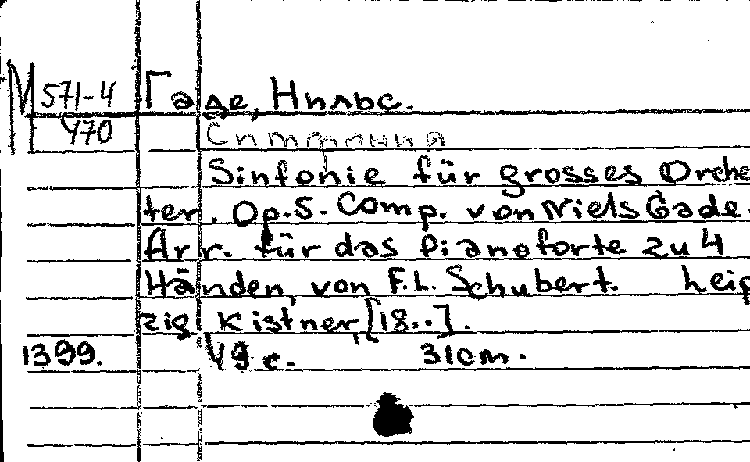 М 571-4 Гаде, Нильс.
470 Симфония
Sinfonie für grosses Orche
ter. Op.5. Comp. von Niels Gade.
Arr. für das Pianoforte zu 4
Händen, von F.L. Schubert. Leip
zig, Kistner, [18..].
1399. 49 с. 31 см.